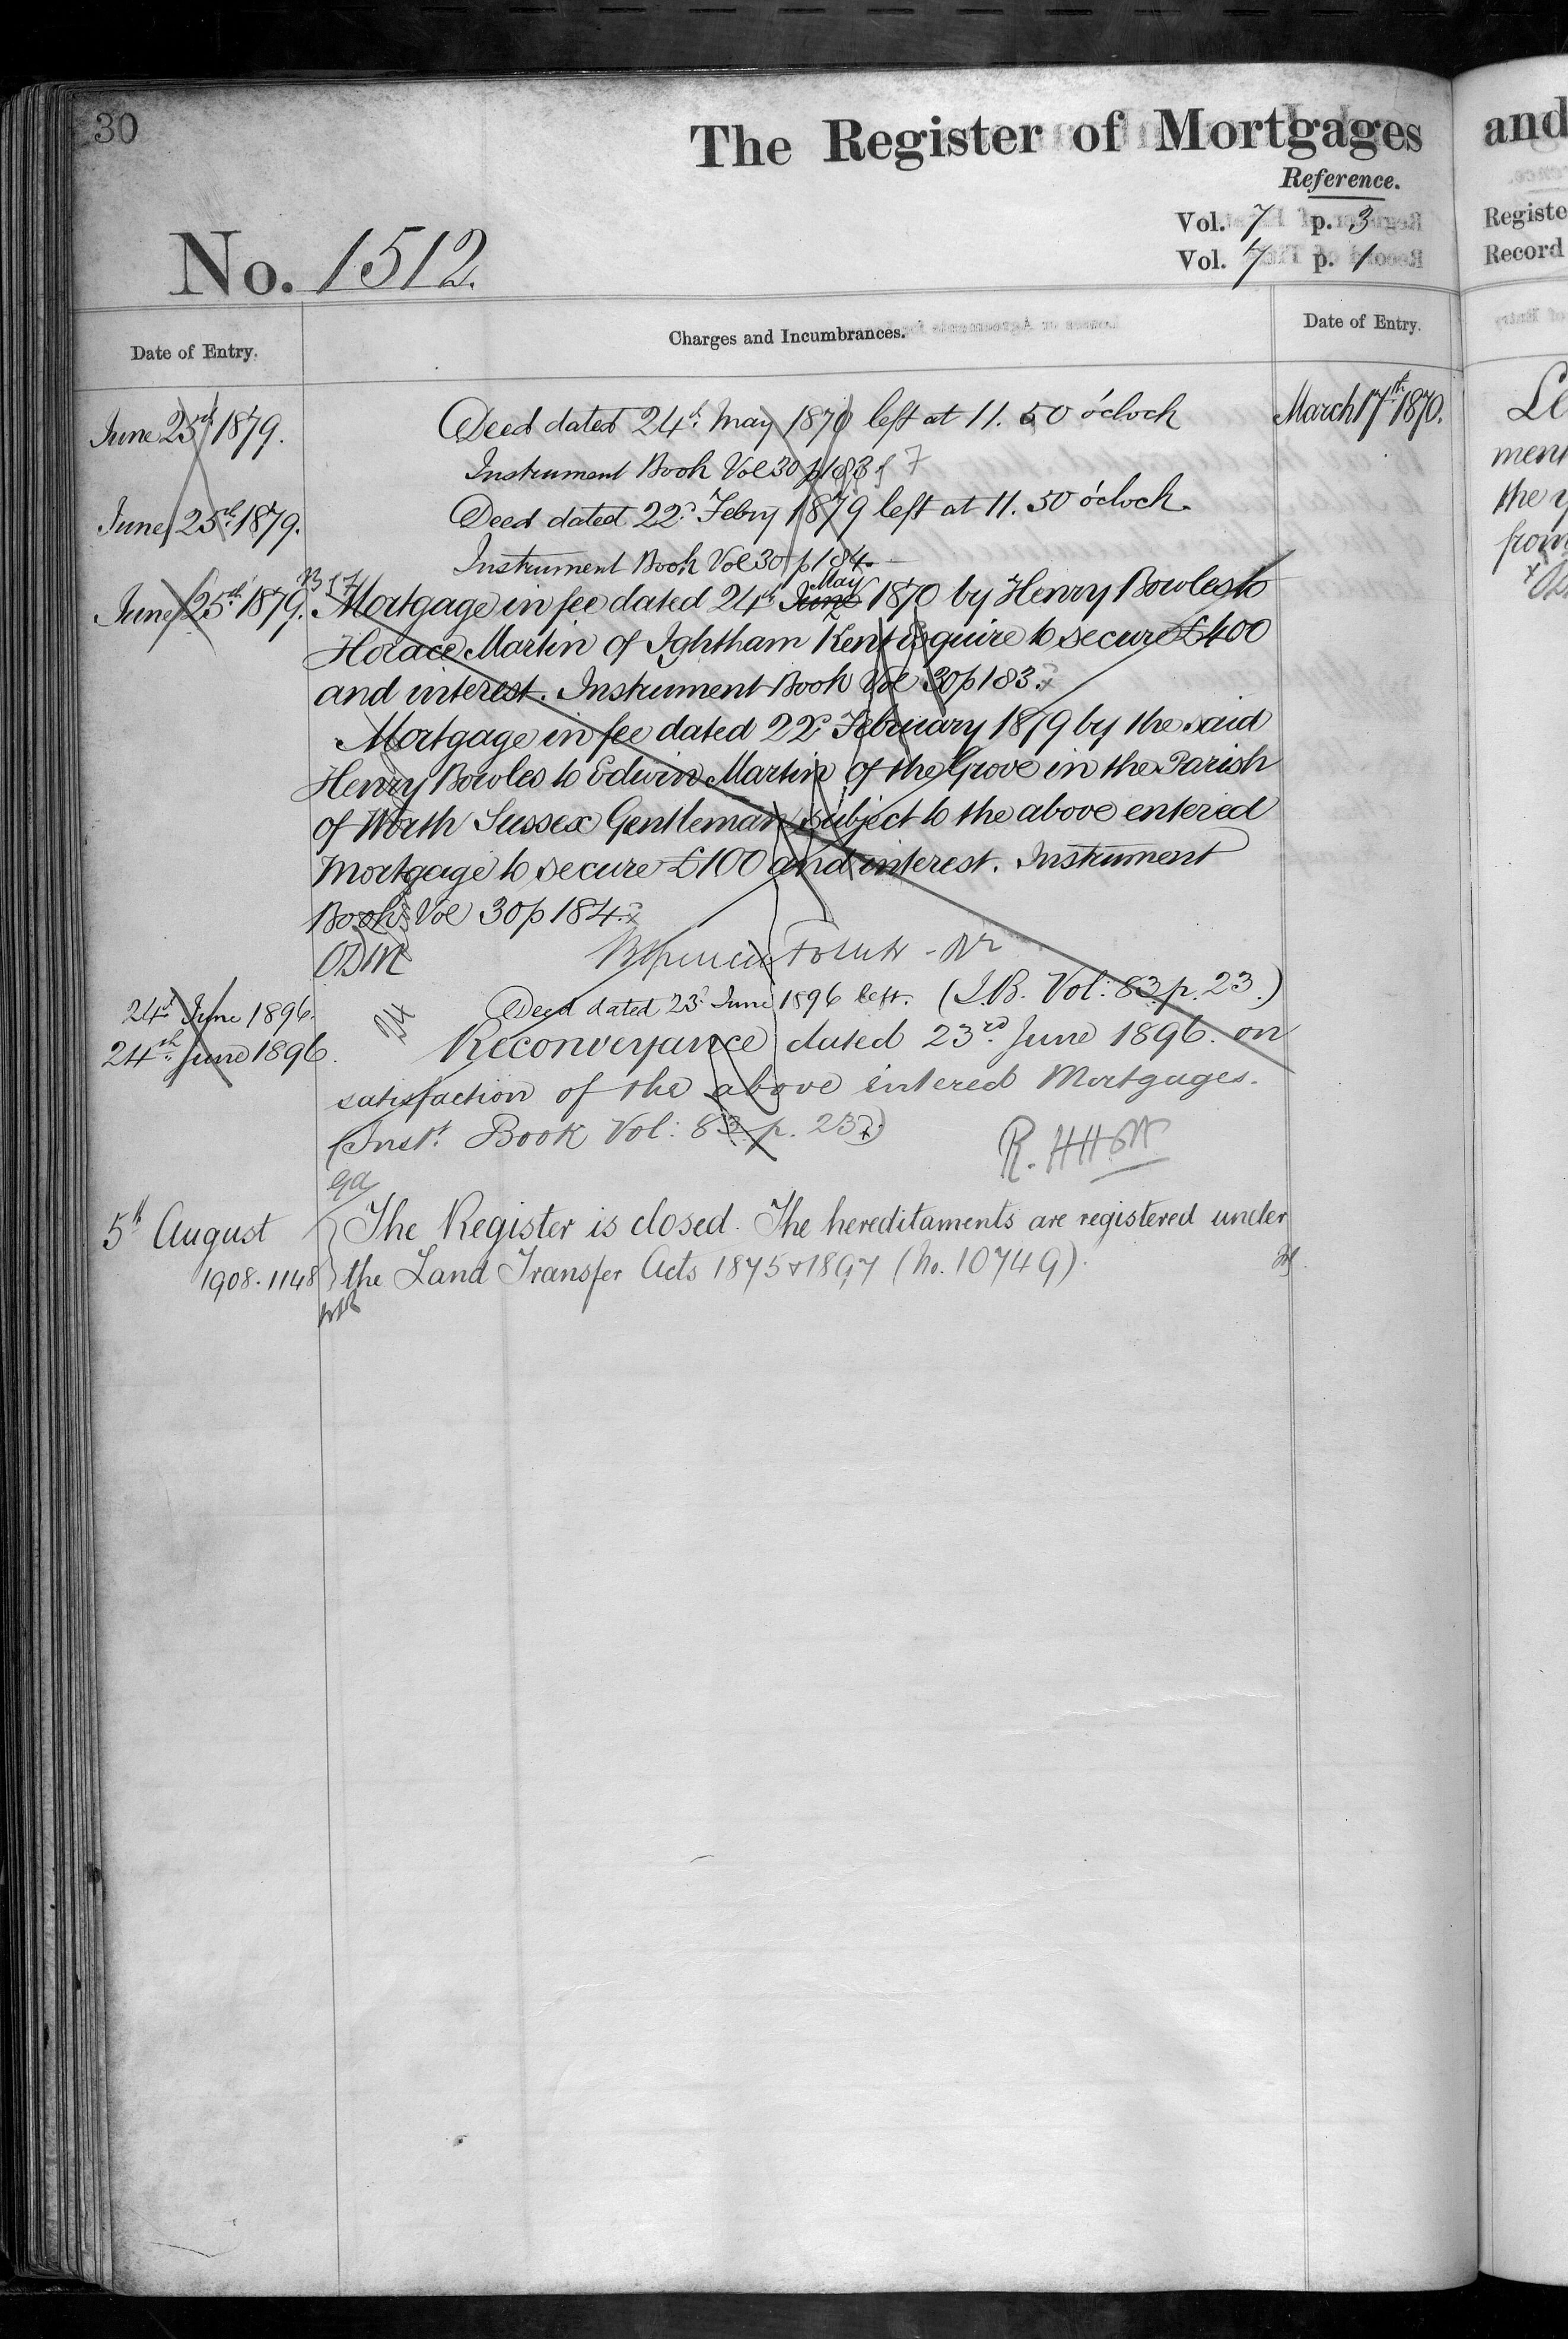 30
The Register of Mortgages
and
Reference.
Vol. 7 p. 3
Registe
No. 1512.
Vol. 7 p. 1
Record
Date of Entry.
Charges and Incumbrances.
Date of Entry.
June 25th 1879.
Deed dated 24th May 1870 left at 11.50 o'clock
March 17th 1870.
Instrument Book Vol 30 p 183
June 25th 1879.
Deed dated 22d Febry 1879 left at 11.50 o'clock.
Instrument Book Vol 30 p 184.
June 25th 1879.
Mortgage in fee dated 24th June May 1870 by Henry Bowles to
Horace Martin of Ightham Kent Esquire to secure £400
and interest. Instrument Book Vol 30 p 183.
Mortgage in fee dated 22d February 1879 by the said
Henry Bowles to Edwin Martin of the Grove in the Parish
of Worth Sussex Gentleman subject to the above entered
Mortgage to secure £100 and interest. Instrument
Book Vol 30 p 184.
24th June 1896.
Deed dated 23d June 1896 left. (I.B. Vol: 83 p. 23.)
24th June 1896.
Reconveyance dated 23rd June 1896. on
satisfaction of the above entered Mortgages.
(Inst. Book Vol: 83 p. 23)
5th August
The Register is closed. The hereditaments are registered under
1908. 1148
the Land Transfer Acts 1875 & 1897 (No. 10749).
ment
the
from